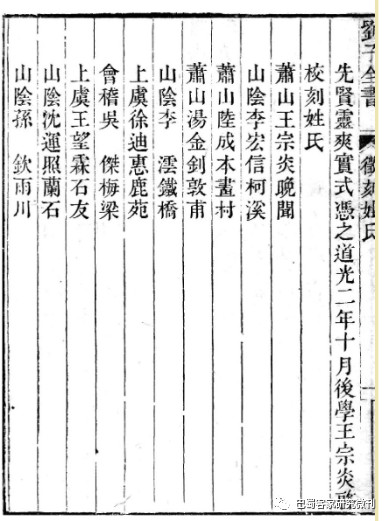 劉子全書 徵刻姓氏
先賢靈爽實式憑之道光二年十月後學王宗炎
校刻姓氏
蕭山王宗炎晚聞
山陰李宏信柯溪
蕭山陸成本畫村
蕭山湯金釗敦甫
山陰李 澐鐵橋
上虞徐迪惠鹿苑
會稽吳 傑梅梁
上虞王望霖石友
山陰沈運照蘭石
山陰孫 欽雨川
巴蜀客家研究微刊